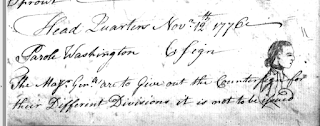 Sprout
Head Quarters Novr. 12th 1776
Parole Washington C Sign
The Majr. Genls. are to Give out the Countersign for
their Different Divisions it is not to be